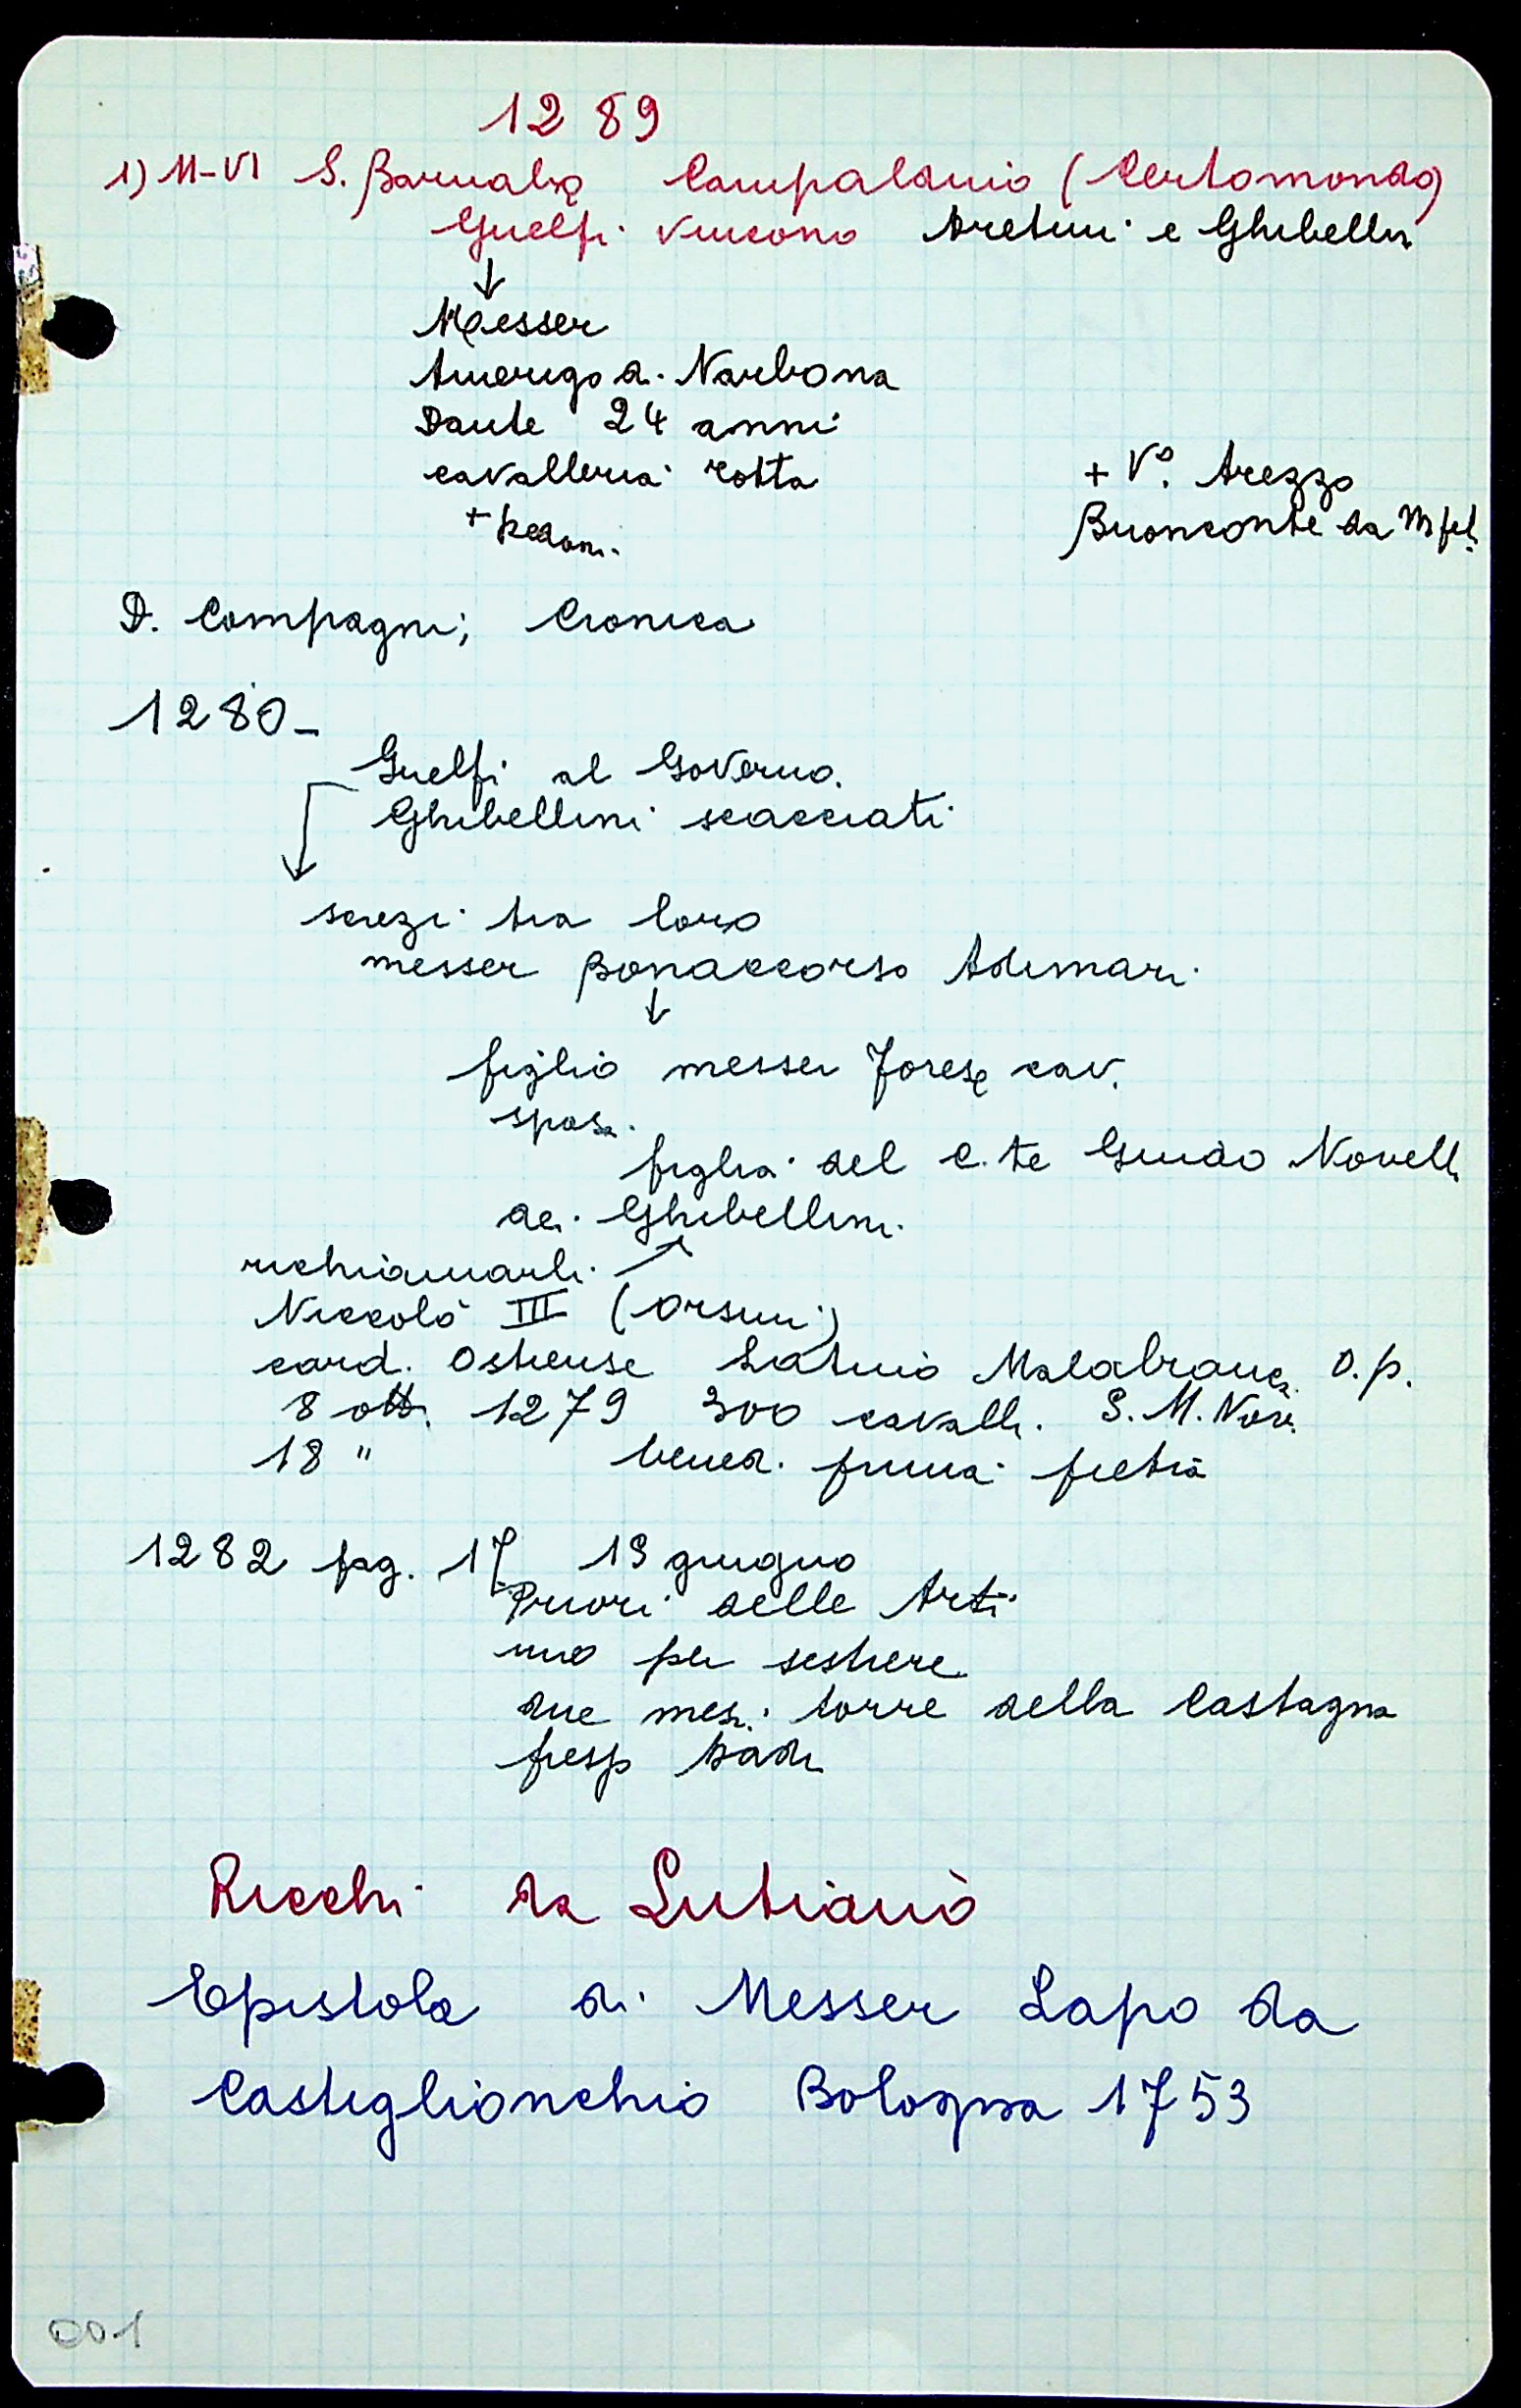 1289
1) 11-VI S. Barnaba Campaldino (Certomondo)
Guelfi vincono Aretini e Ghibellin
↓
Messer
Amerigo di Narbona
Dante 24 anni
cavalleria rotta + V°. Arezzo
+ pedoni. Buonconte da M fel.
D. Compagni; Cronica
1280-
Guelfi al Governo.
Ghibellini scacciati
screzi tra loro
messer Bonaccorso Adimari
↓
figlio messer Forese cav.
sposa
figlia del c.te Guido Novell
dei Ghibellini
richiamarli
Niccolò III (Orsini)
card. Ostiense Latino Malabranca O.p.
8 ott. 1279 300 cavalli. S. M. Nov.
18 " bened. prima pietra
1282 pag. 17 19 giugno
Priori delle Arti
uno per sestiere
due mesi torre della Castagna
presso Badia
Ricchi da Lutiano
Epistola di Messer Lapo da
Castiglionchio Bologna 1753
001